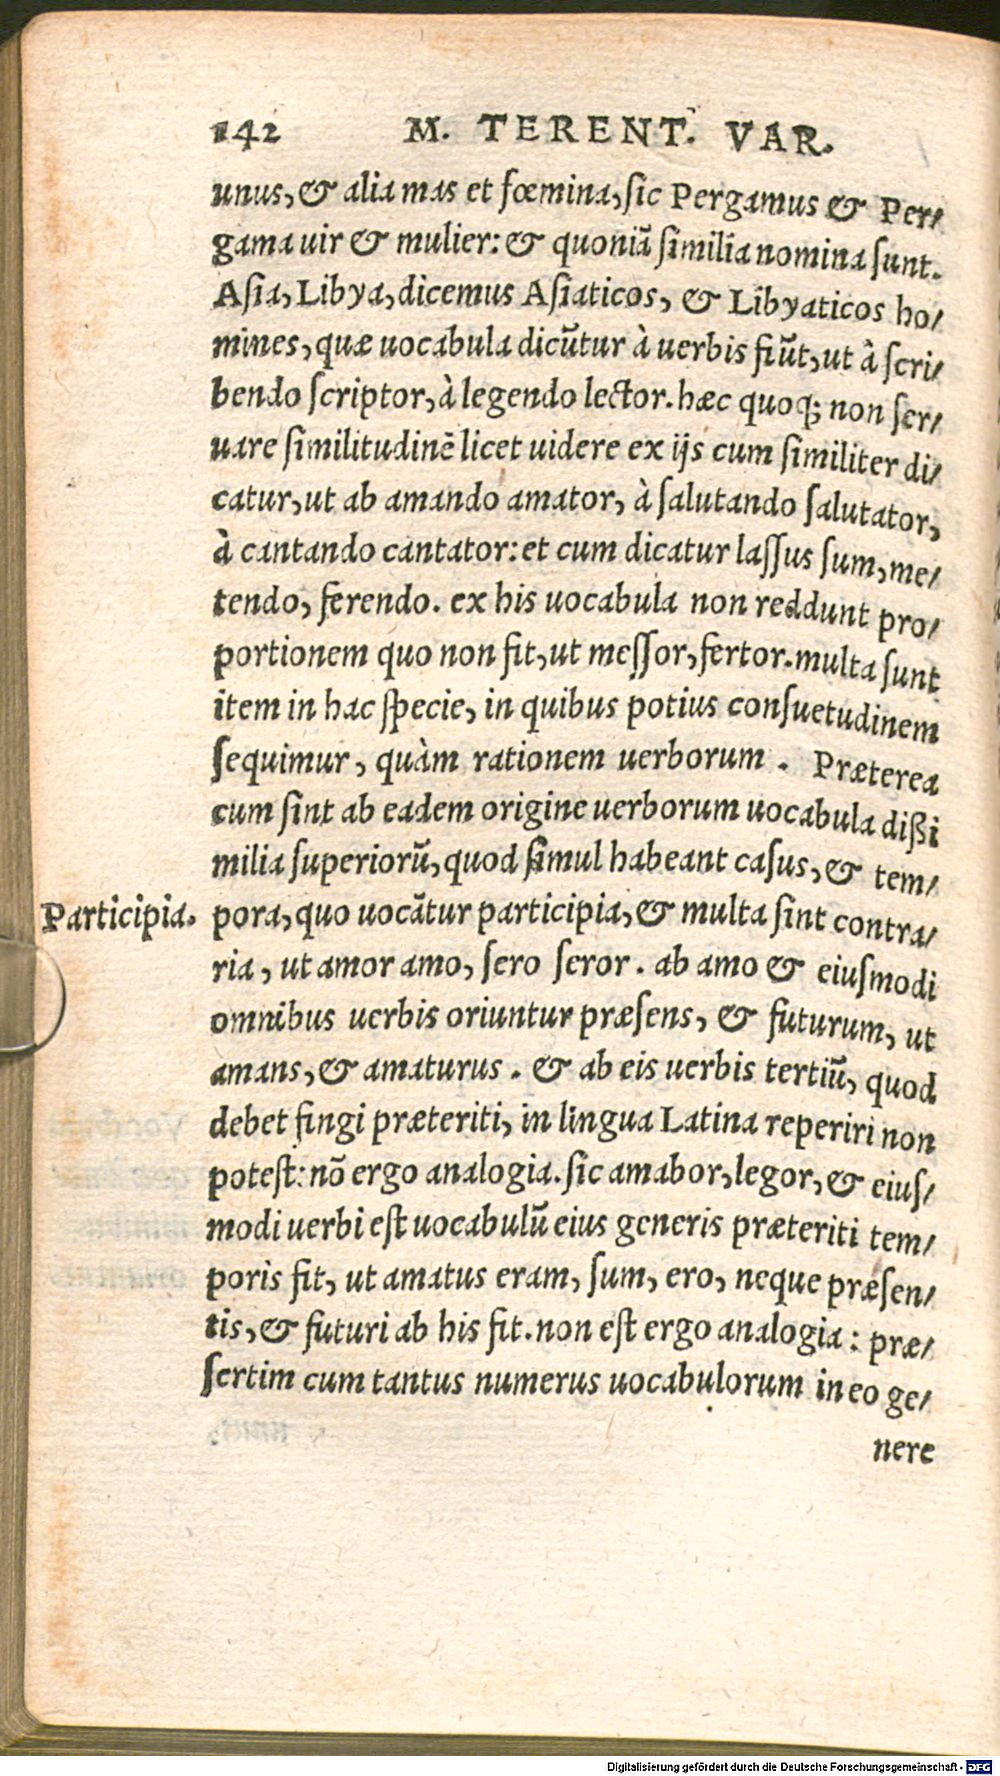 142 M. TERENT. VAR.
unus, & alia mas et fœmina, sic Pergamus & Per/
gama uir & mulier: & quoniā similia nomina sunt.
Asia, Libya, dicemus Asiaticos, & Libyaticos ho/
mines, quæ uocabula dicūtur à uerbis fiūt, ut à scri/
bendo scriptor, à legendo lector. hæc quoq; non ser/
uare similitudinē licet uidere ex ijs cum similiter di/
catur, ut ab amando amator, à salutando salutator,
à cantando cantator: et cum dicatur lassus sum, me/
tendo, ferendo. ex his uocabula non reddunt pro/
portionem quo non fit, ut messor, fertor. multa sunt
item in hac specie, in quibus potius consuetudinem
sequimur, quàm rationem uerborum. Præterea
cum sint ab eadem origine uerborum uocabula dißi
milia superiorū, quod simul habeant casus, & tem/
Participia. pora, quo uocātur participia, & multa sint contra/
ria, ut amor amo, sero seror. ab amo & eiusmodi
omnibus uerbis oriuntur præsens, & futurum, ut
amans, & amaturus. & ab eis uerbis tertiū, quod
debet fingi præteriti, in lingua Latina reperiri non
potest: nō ergo analogia. sic amabor, legor, & eius/
modi uerbi est uocabulū eius generis præteriti tem/
poris fit, ut amatus eram, sum, ero, neque præsen/
tis, & futuri ab his fit. non est ergo analogia: præ/
sertim cum tantus numerus uocabulorum in eo ge/
nere
Digitalisierung gefördert durch die Deutsche Forschungsgemeinschaft - DFG